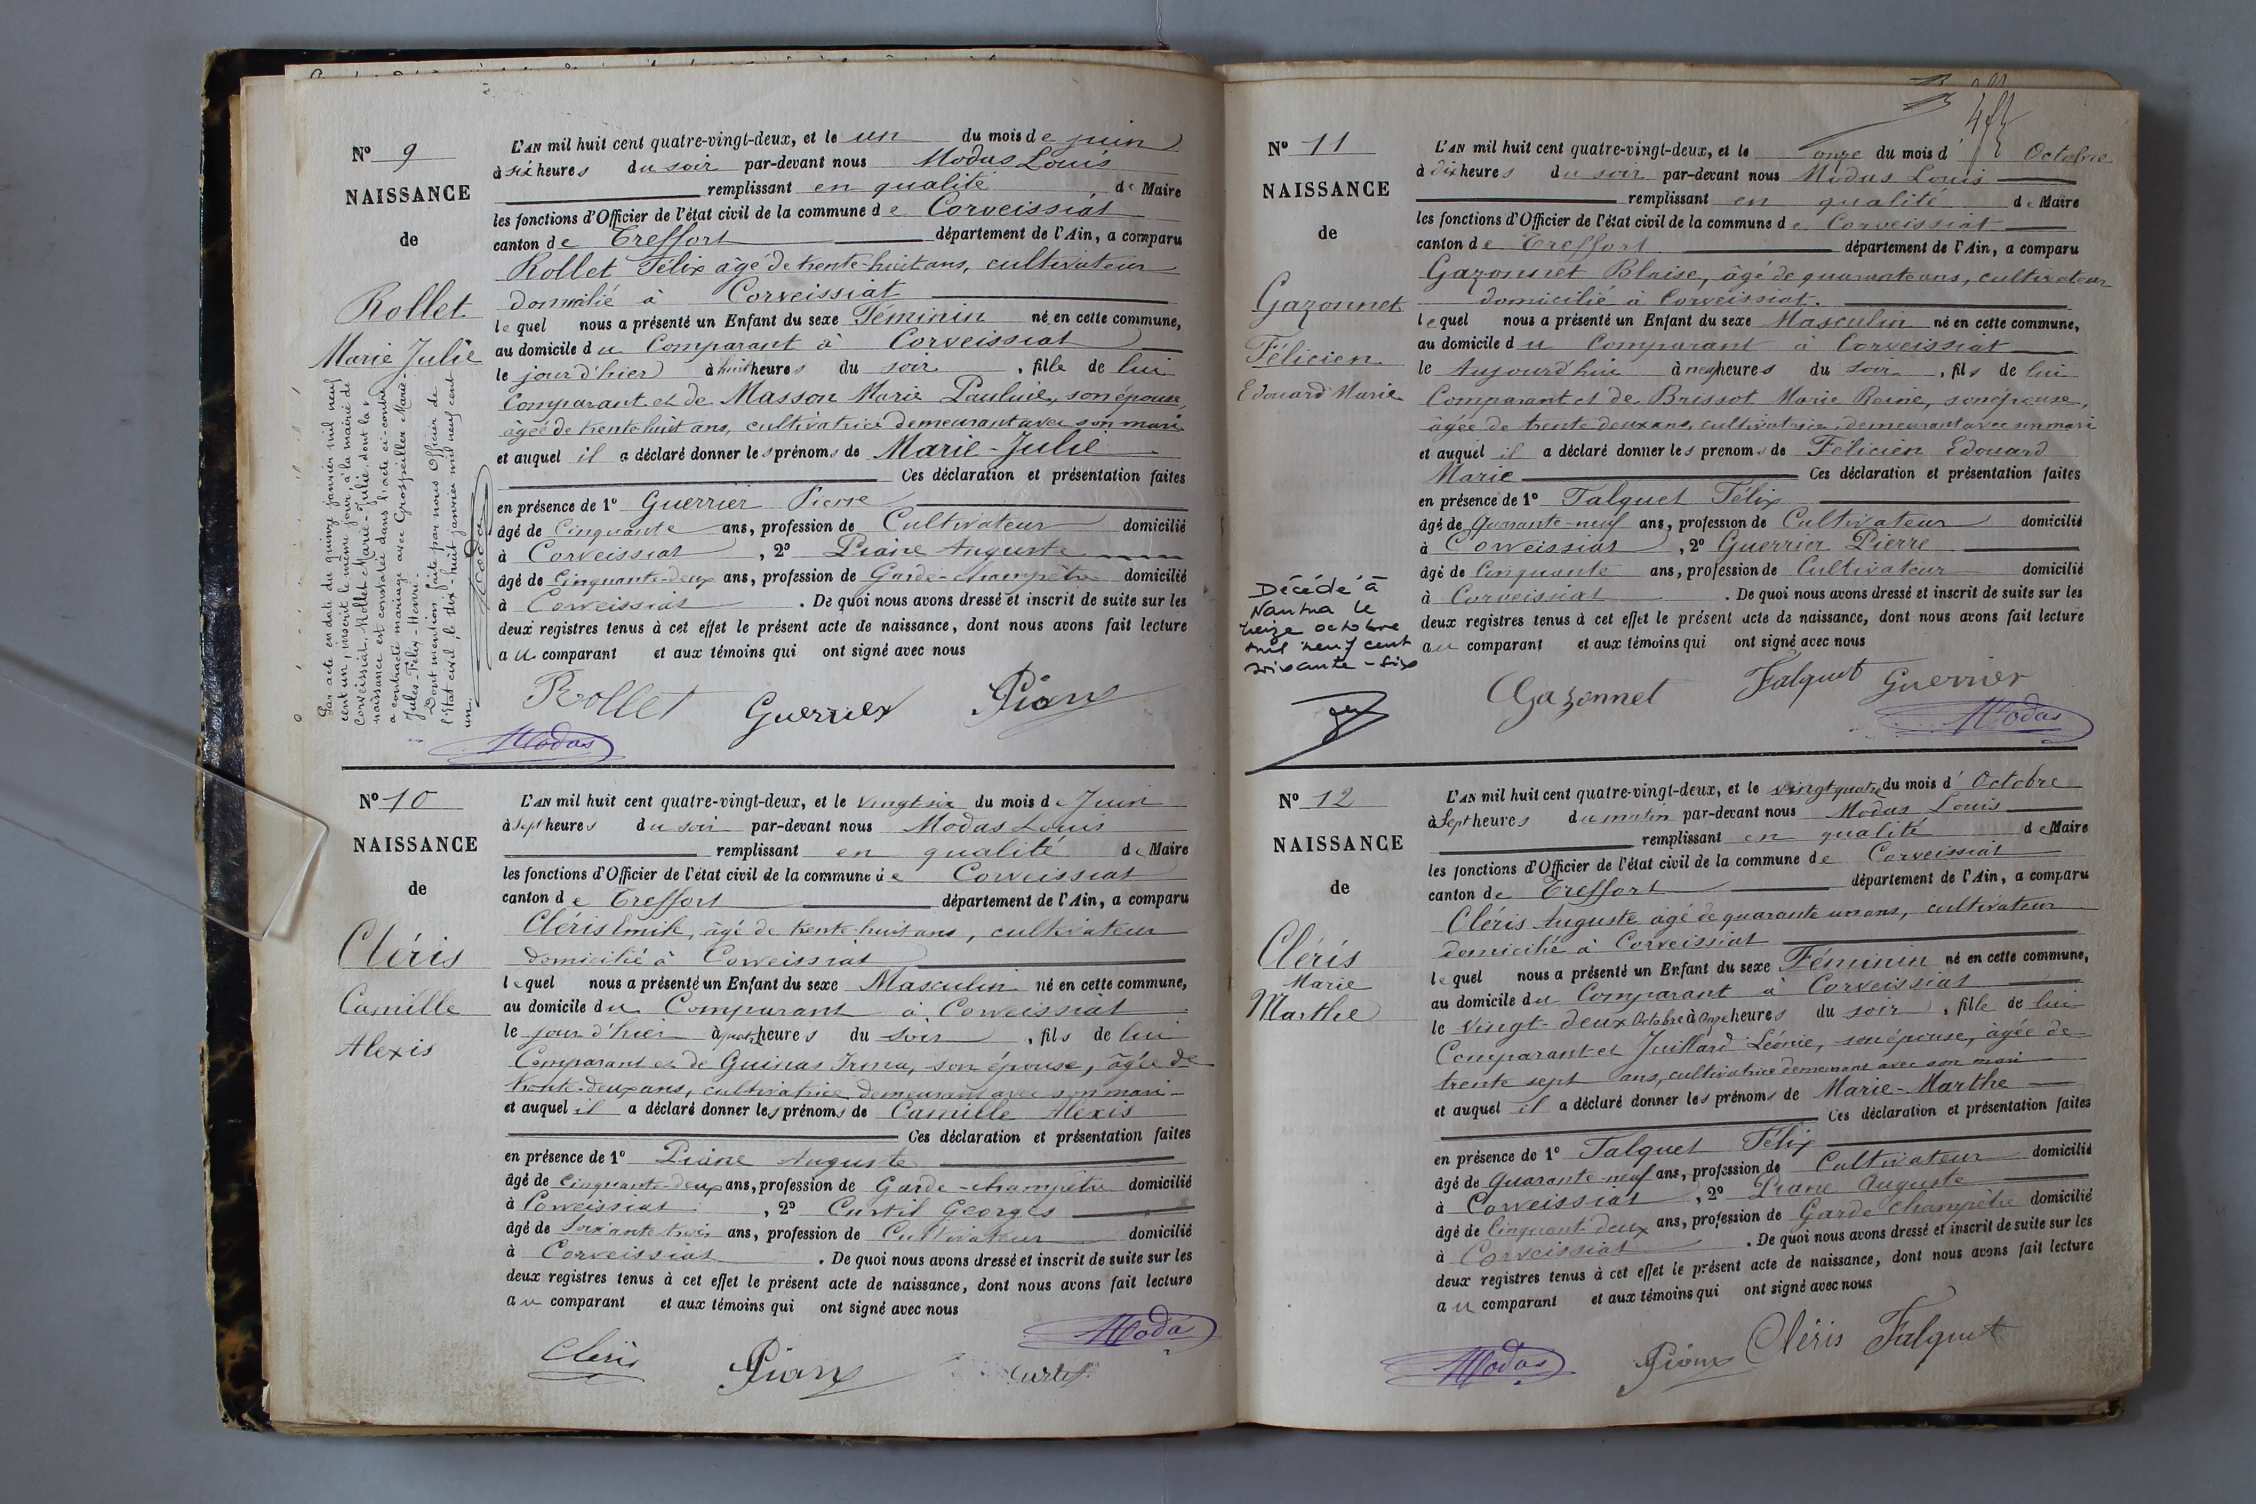 Nº 9
NAISSANCE
de
Rollet
Marie Julie
Par acte en date du quinze janvier mil neuf
cent un, inscrit le même jour, à la mairie de
Corveissiat, Rollet Marie-Julie, dont la
naissance est constatée dans l'acte ci-contre
a contracté mariage avec Grospellier Marie-
Jules-Félix-Henri.
Dont mention faite par nous Officier de
l'état civil le dix-huit janvier mil neuf cent
un.
Modas
L'AN mil huit cent quatre-vingt-deux, et le un du mois de juin
à six heures du soir par-devant nous Modas Louis
remplissant en qualité de Maire
les fonctions d'Officier de l'état civil de la commune de Corveissiat
canton de Treffort département de l'Ain, a comparu
Rollet Félix âgé de trente-huit ans, cultivateur
domicilié à Corveissiat
lequel nous a présenté un Enfant du sexe Féminin né en cette commune,
au domicile du Comparant à Corveissiat
le jour d'hier à huit heures du soir, fille de lui
Comparant et de Masson Marie Pauline, son épouse,
âgée de trente huit ans, cultivatrice demeurant avec son mari
et auquel il a déclaré donner les prénoms de Marie-Julie
Ces déclaration et présentation faites
en présence de 1º Guerrier Pierre
âgé de Cinquante ans, profession de Cultivateur domicilié
à Corveissiat, 2º Piane Auguste
âgé de Cinquante-deux ans, profession de Garde-champêtre domicilié
à Corveissiat. De quoi nous avons dressé et inscrit de suite sur les
deux registres tenus à cet effet le présent acte de naissance, dont nous avons fait lecture
au comparant et aux témoins qui ont signé avec nous
Rollet Guerrier Piane
Modas
Nº 10
NAISSANCE
de
Cléris
Camille
Alexis
L'AN mil huit cent quatre-vingt-deux, et le vingt six du mois de Juin
à Sept heures du soir par-devant nous Modas Louis
remplissant en qualité de Maire
les fonctions d'Officier de l'état civil de la commune de Corveissiat
canton de Treffort département de l'Ain, a comparu
Cléris Emile, âgé de trente huit ans, cultivateur
domicilié à Corveissiat
lequel nous a présenté un Enfant du sexe Masculin né en cette commune,
au domicile du Comparant à Corveissiat
le jour d'hier à quatre heures du soir, fils de lui
Comparant et de Guinas Irma, son épouse, âgée de
trente-deux ans, cultivatrice demeurant avec son mari
et auquel il a déclaré donner les prénoms de Camille Alexis
Ces déclaration et présentation faites
en présence de 1º Piane Auguste
âgé de Cinquante-deux ans, profession de Garde-champêtre domicilié
à Corveissiat, 2º Curtil Georges
âgé de Soixante trois ans, profession de Cultivateur domicilié
à Corveissiat. De quoi nous avons dressé et inscrit de suite sur les
deux registres tenus à cet effet le présent acte de naissance, dont nous avons fait lecture
au comparant et aux témoins qui ont signé avec nous
Modas
Cléris Piane Curtil
Nº 11
NAISSANCE
de
Gazonnet
Félicien
Edouard Marie
Décédé à
Nantua le
treize octobre
mil neuf cent
soixante-six
L'AN mil huit cent quatre-vingt-deux, et le onze du mois d'Octobre
à dix heures du soir par-devant nous Modas Louis
remplissant en qualité de Maire
les fonctions d'Officier de l'état civil de la commune de Corveissiat
canton de Treffort département de l'Ain, a comparu
Gazonnet Blaise, âgé de quarante ans, cultivateur
domicilié à Corveissiat.
lequel nous a présenté un Enfant du sexe Masculin né en cette commune,
au domicile du Comparant à Corveissiat
le Aujourd'hui à neuf heures du soir, fils de lui
Comparant et de Brissot Marie Reine, son épouse,
âgée de trente deux ans, cultivatrice, demeurant avec son mari
et auquel il a déclaré donner les prénoms de Félicien Edouard
Marie Ces déclaration et présentation faites
en présence de 1º Falquet Félix
âgé de Quarante-neuf ans, profession de Cultivateur domicilié
à Corveissiat, 2º Guerrier Pierre
âgé de Cinquante ans, profession de Cultivateur domicilié
à Corveissiat. De quoi nous avons dressé et inscrit de suite sur les
deux registres tenus à cet effet le présent acte de naissance, dont nous avons fait lecture
au comparant et aux témoins qui ont signé avec nous
Gazonnet Falquet Guerrier
Modas
Nº 12
NAISSANCE
de
Cléris
Marie
Marthe
L'AN mil huit cent quatre-vingt-deux, et le vingt quatre du mois d'Octobre
à Sept heures du matin par-devant nous Modas Louis
remplissant en qualité de Maire
les fonctions d'Officier de l'état civil de la commune de Corveissiat
canton de Treffort département de l'Ain, a comparu
Cléris Auguste âgé de quarante un ans, cultivateur
domicilié à Corveissiat
lequel nous a présenté un Enfant du sexe Féminin né en cette commune,
au domicile du Comparant à Corveissiat
le Vingt-deux Octobre à Onze heures du soir, fille de lui
Comparant et Juillard Léonie, son épouse, âgée de
trente sept ans, cultivatrice demeurant avec son mari
et auquel il a déclaré donner les prénoms de Marie-Marthe
Ces déclaration et présentation faites
en présence de 1º Falquet Félix
âgé de Quarante-neuf ans, profession de Cultivateur domicilié
à Corveissiat, 2º Piane Auguste
âgé de Cinquante-deux ans, profession de Garde champêtre domicilié
à Corveissiat. De quoi nous avons dressé et inscrit de suite sur les
deux registres tenus à cet effet le présent acte de naissance, dont nous avons fait lecture
au comparant et aux témoins qui ont signé avec nous
Modas Piane Cléris Falquet